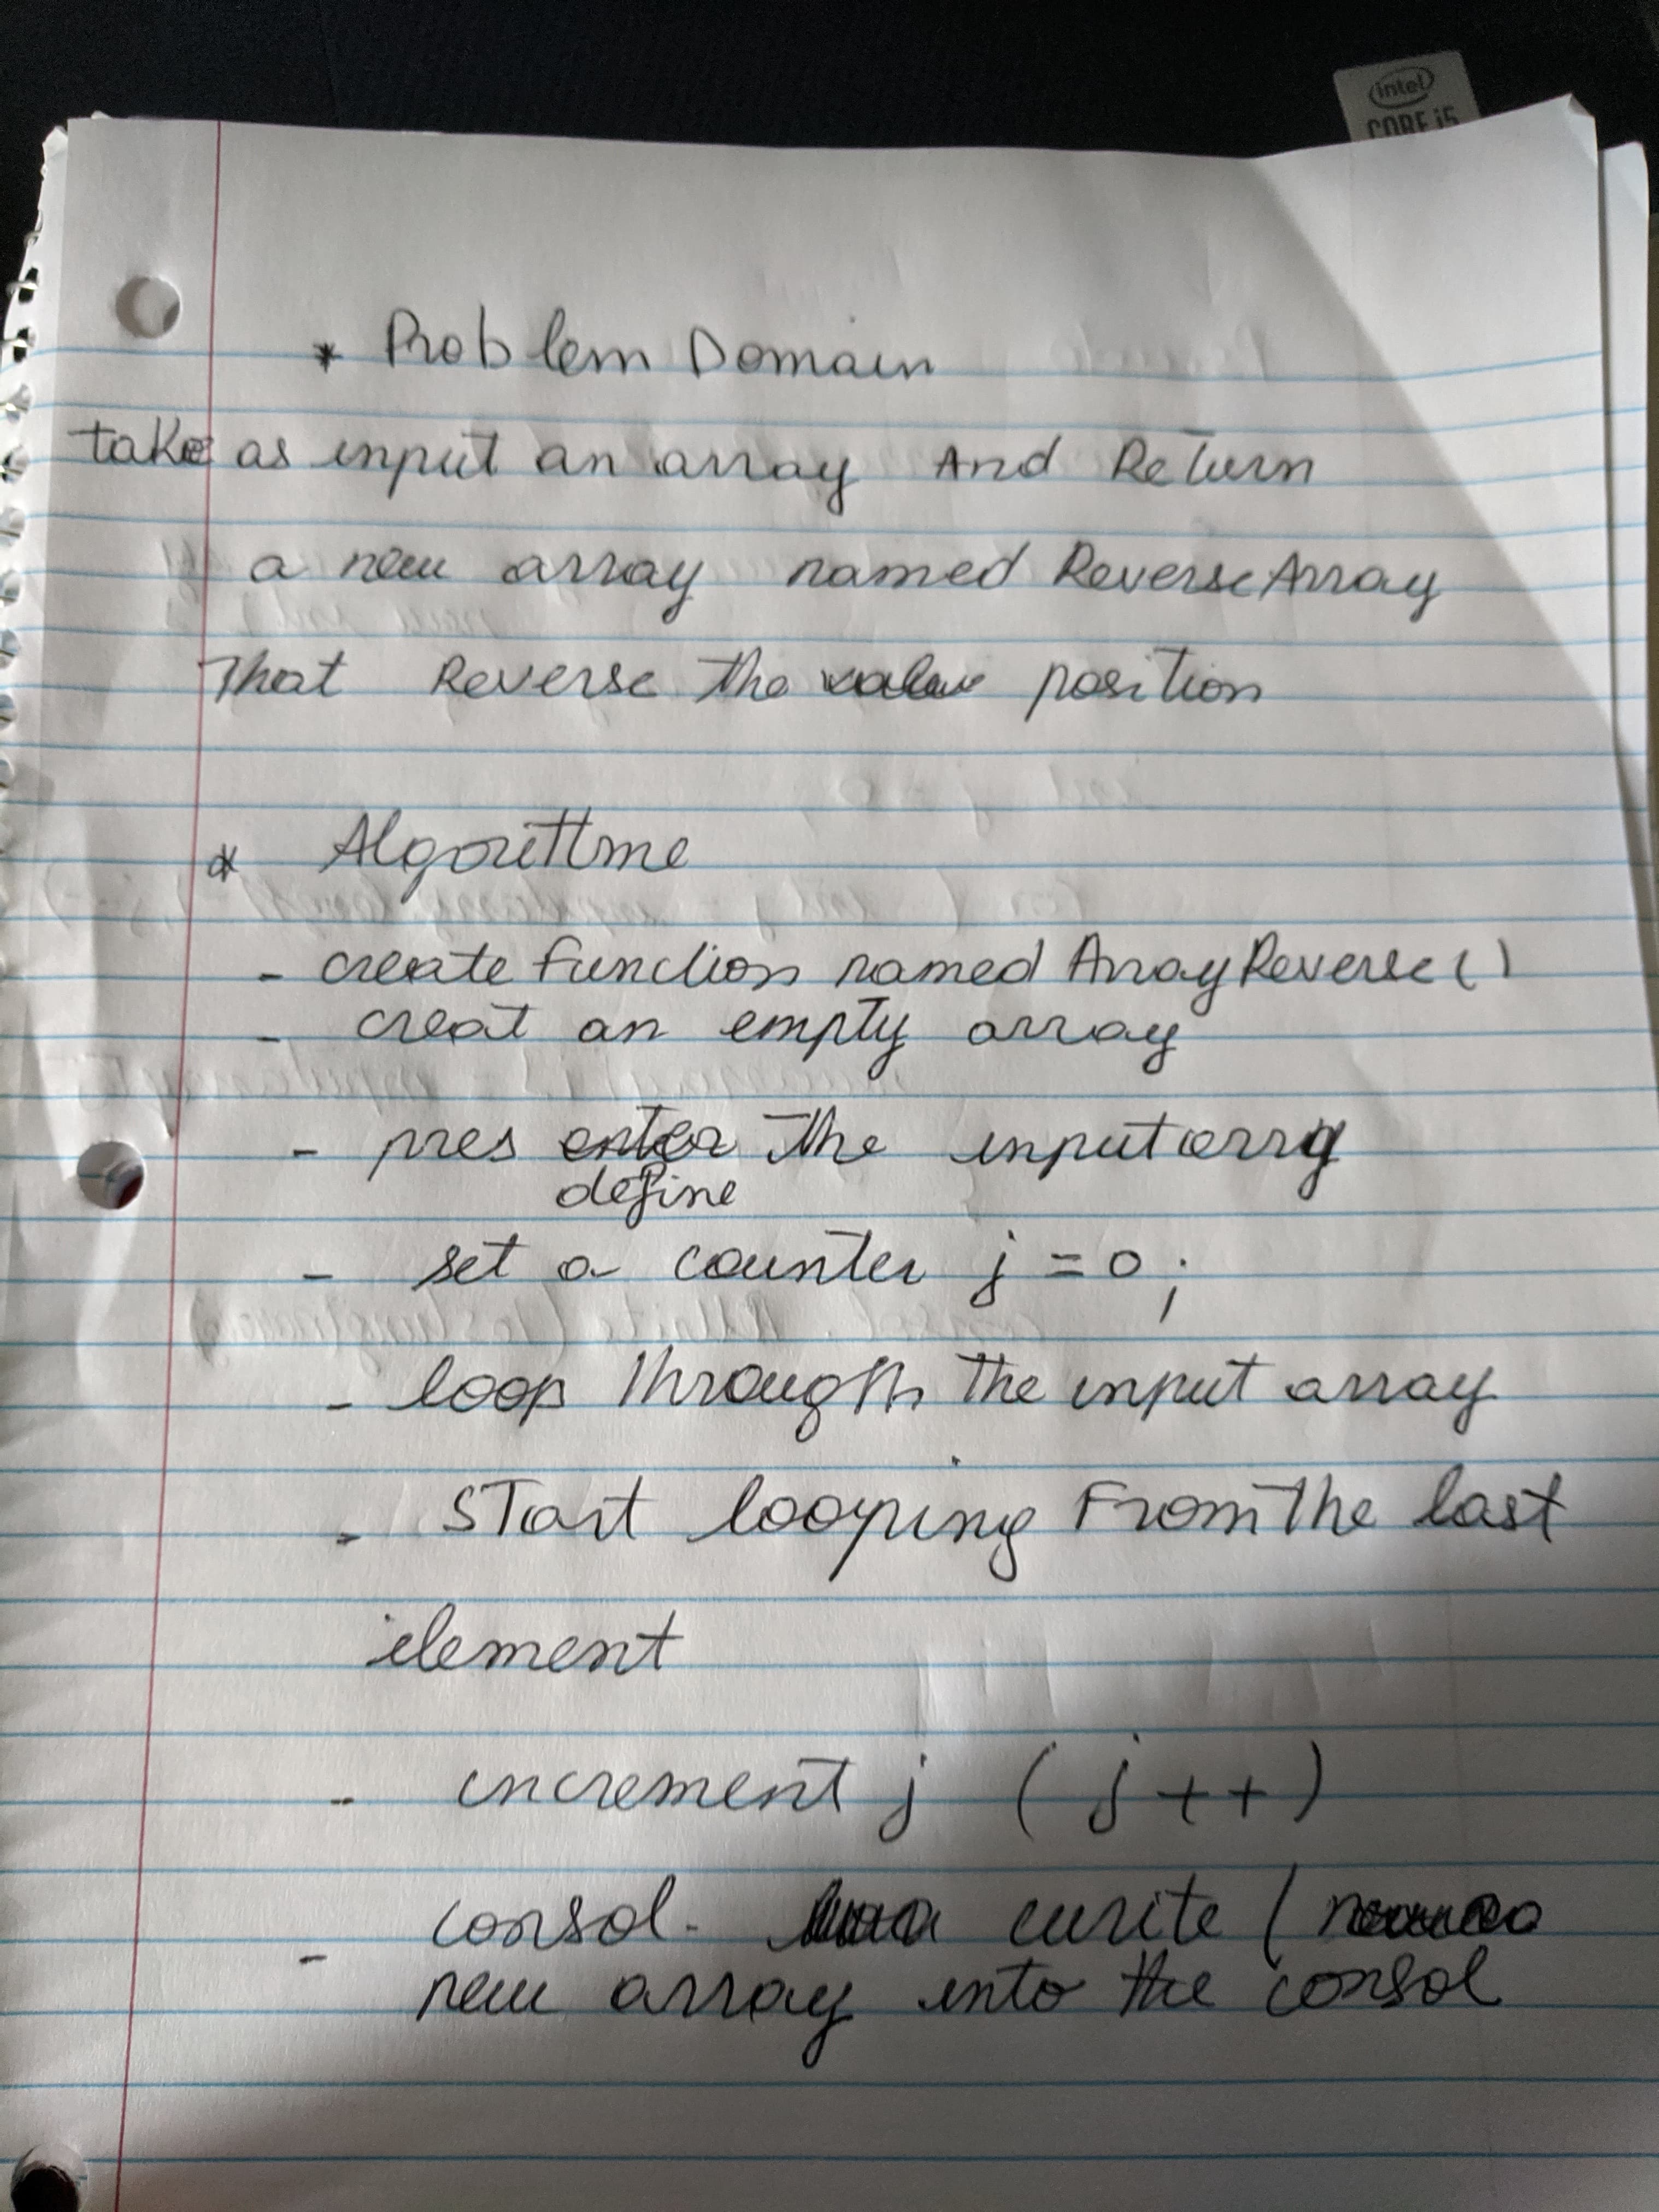 intel
CORE i5
* Problem Domain
take as input an array And Return
a new array named ReverseArray
That Reverse the value position
* Algorithme
- create function named ArrayReverse()
- creat an empty array
- pres enter the inputarry
define
- set a counter j = 0 ;
- loop through the input array
- START looping From The last
element
- increment j ( j++ )
- consol. write (
new array into the consol